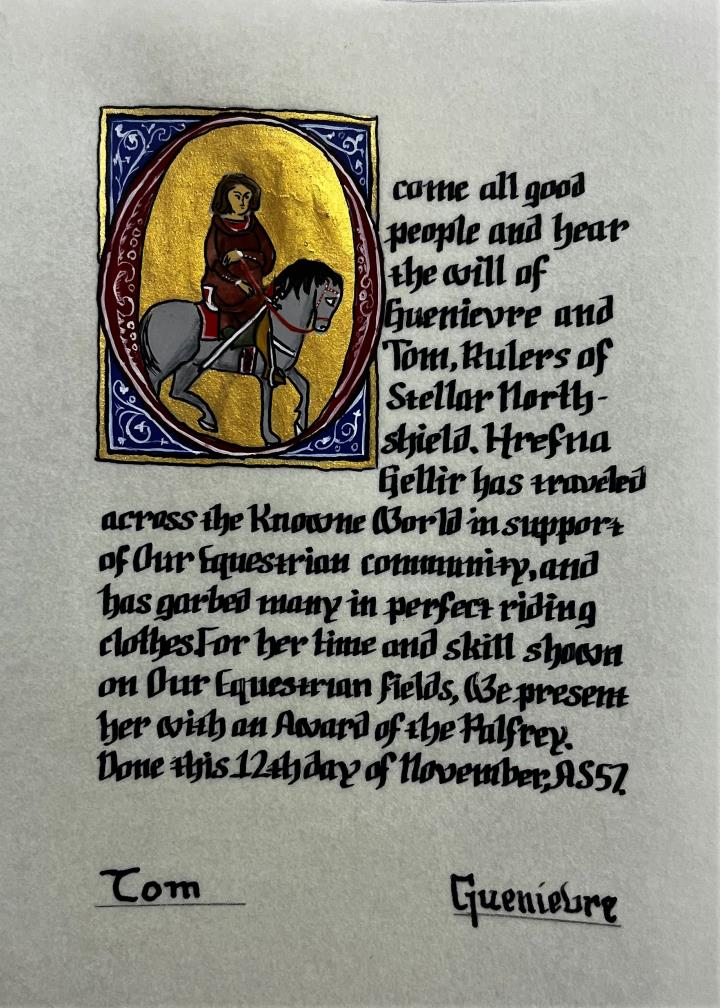 O come all good
people and hear
the will of
Guenievre and
Tom, Rulers of
Stellar North-
shield. Hrefna
Gellir has traveled
across the Knowne World in support
of Our Equestrian community, and
has garbed many in perfect riding
clothes. For her time and skill shown
on Our Equestrian fields, We present
her with an Award of the Palfrey.
Done this 12th day of November, AS57.
Tom
Guenievre